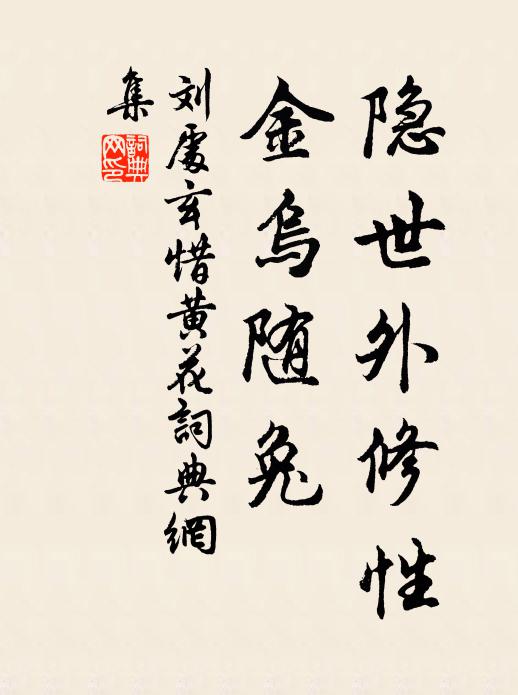 隐世外修性
金乌随兔
刘處玄惜黄花詞典網
集
詞典網印